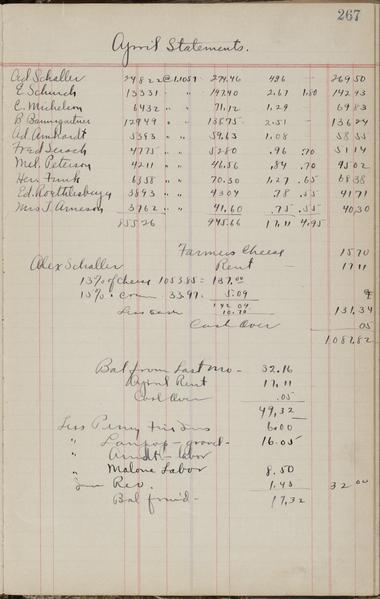 267
April Statements.
Ad Schaller 24822 @1.1057 274.46 4.96 — 269 50
E Schurch 13331 " " 147.40 2.67 1.80 142 93
C. Michelson 6432 " " 71.12 1.29 69 83
B Baumgartner 12449 " " 2.51 — 136 24
Ad. Arnhardt 5393 " " 59.63 1.08 58 55
Fred 4775 " " 52.80 .96 .70 51 14
Mel. Peterson 4211 " " 46.56 .84 .70 45 02
Hen Funk 6358 " " 70.30 1.27 .65 68 38
Ed. Roethlesburg 3893 " " 43.04 .78 .55 41 71
Mrs T. Arneson 3762 " " 41.60 .75 .55 40.30
85526 945.66 17.11 4.95
Farmers Cheese 15 70
Alex Schaller Rent — 17 11
13% of Cheese 1053.85 = 137.00
15% " Cream 33.97 5.09
142 09
Less 10.70 131.34
Cash Over .05
1087.82
Bal from Last Mo — 32.16
April Rent 17.11
Cash Over .05
49,32
Less Ins 6.00
" — gravel - 16.05
" — labor
" Malone Labor 8.50
Rev. 1.45 32 00
Bal 17,32